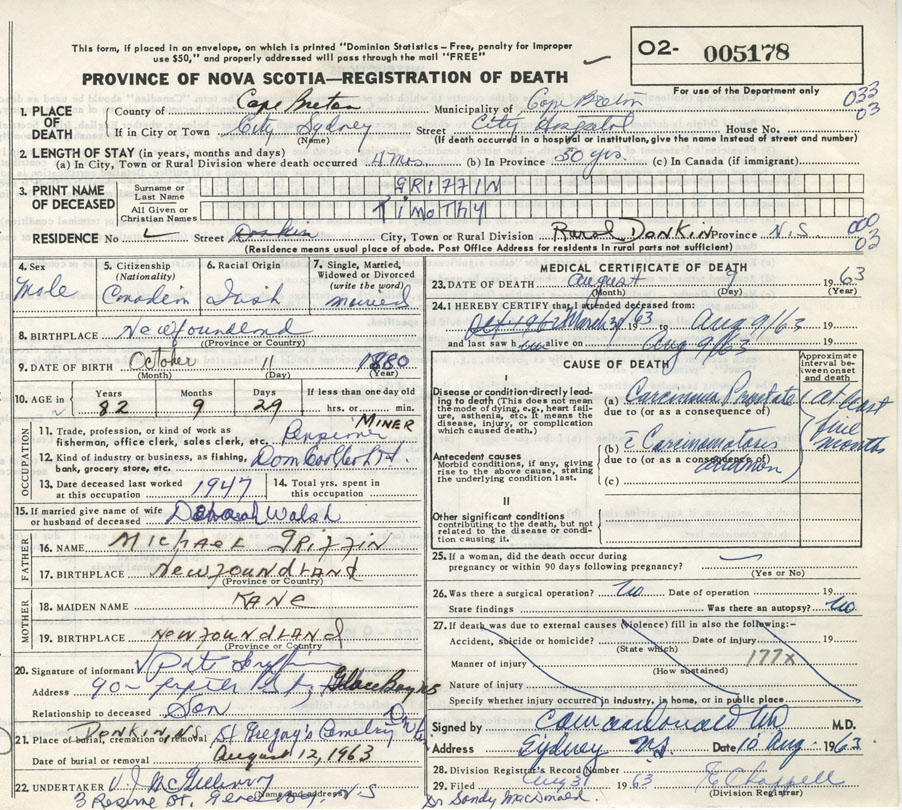 This form, if placed in an envelope, on which is printed "Dominion Statistics – Free, penalty for Improper
use $50," and properly addressed will pass through the mail "FREE"
O2- 005178
PROVINCE OF NOVA SCOTIA—REGISTRATION OF DEATH
For use of the Department only
033
03
1. PLACE OF DEATH
County of Cape Breton Municipality of Cape Breton
If in City or Town City Sydney Street City Hospital House No.
(Name) (If death occurred in a hospital or institution, give the name instead of street and number)
2. LENGTH OF STAY (in years, months and days)
(a) In City, Town or Rural Division where death occurred 4 Mos. (b) In Province 50 yrs. (c) In Canada (if immigrant)
3. PRINT NAME OF DECEASED
Surname or Last Name GRIFFIN
All Given or Christian Names TIMOTHY
RESIDENCE No Street Donkin City, Town or Rural Division Rural Donkin Province N.S.
000
02
(Residence means usual place of abode. Post Office Address for residents in rural parts not sufficient)
4. Sex
Male
5. Citizenship
(Nationality)
Canadian
6. Racial Origin
Irish
7. Single, Married, Widowed or Divorced
(write the word)
married
8. BIRTHPLACE Newfoundland
(Province or Country)
9. DATE OF BIRTH October 11 1880
(Month) (Day) (Year)
10. AGE in
Years Months Days If less than one day old
82 9 29 hrs. or min.
OCCUPATION
11. Trade, profession, or kind of work as fisherman, office clerk, sales clerk, etc. Pensioner MINER
12. Kind of industry or business, as fishing, bank, grocery store, etc.
13. Date deceased last worked at this occupation 1947
14. Total yrs. spent in this occupation
15. If married give name of wife or husband of deceased Deborah Walsh
FATHER
16. NAME MICHAEL GRIFFIN
17. BIRTHPLACE NEWFOUNDLAND
(Province or Country)
MOTHER
18. MAIDEN NAME KANE
19. BIRTHPLACE NEWFOUNDLAND
(Province or Country)
20. Signature of informant
Address 90- Glace Bay NS
Relationship to deceased Son
21. Place of burial, cremation or removal DONKIN, N.S. Cemetery
Date of burial or removal August 12, 1963
22. UNDERTAKER
(Name and address)
3 Reserve St. N.S
MEDICAL CERTIFICATE OF DEATH
23. DATE OF DEATH August 9 1963
(Month) (Day) (Year)
24. I HEREBY CERTIFY that I attended deceased from:
March 63 to Aug 9/63 19
and last saw h alive on Aug 9/63 19
CAUSE OF DEATH
Approximate interval between onset and death
I
Disease or condition directly leading to death (This does not mean the mode of dying, e.g., heart failure, asthenia, etc. It means the disease, injury, or complication which caused death.)
(a) Carcinoma Prostate
due to (or as a consequence of)
at least five months
Antecedent causes
Morbid conditions, if any, giving rise to the above cause, stating the underlying condition last.
(b) c̄ Carcinomatous
due to (or as a consequence of)
(c)
II
Other significant conditions
contributing to the death, but not related to the disease or condition causing it.
25. If a woman, did the death occur during pregnancy or within 90 days following pregnancy?
(Yes or No)
26. Was there a surgical operation? No Date of operation 19
State findings Was there an autopsy? No
27. If death was due to external causes (violence) fill in also the following:-
Accident, suicide or homicide? Date of injury 19
(State which)
177x
Manner of injury
(How sustained)
Nature of injury
Specify whether injury occurred in industry, in home, or in public place
Signed by M.D.
Address Sydney N.S. Date 10 Aug 1963
28. Division Registrar's Record Number
29. Filed Aug 31 1963 Chappell
(Division Registrar)
Dr Sandy MacDonald